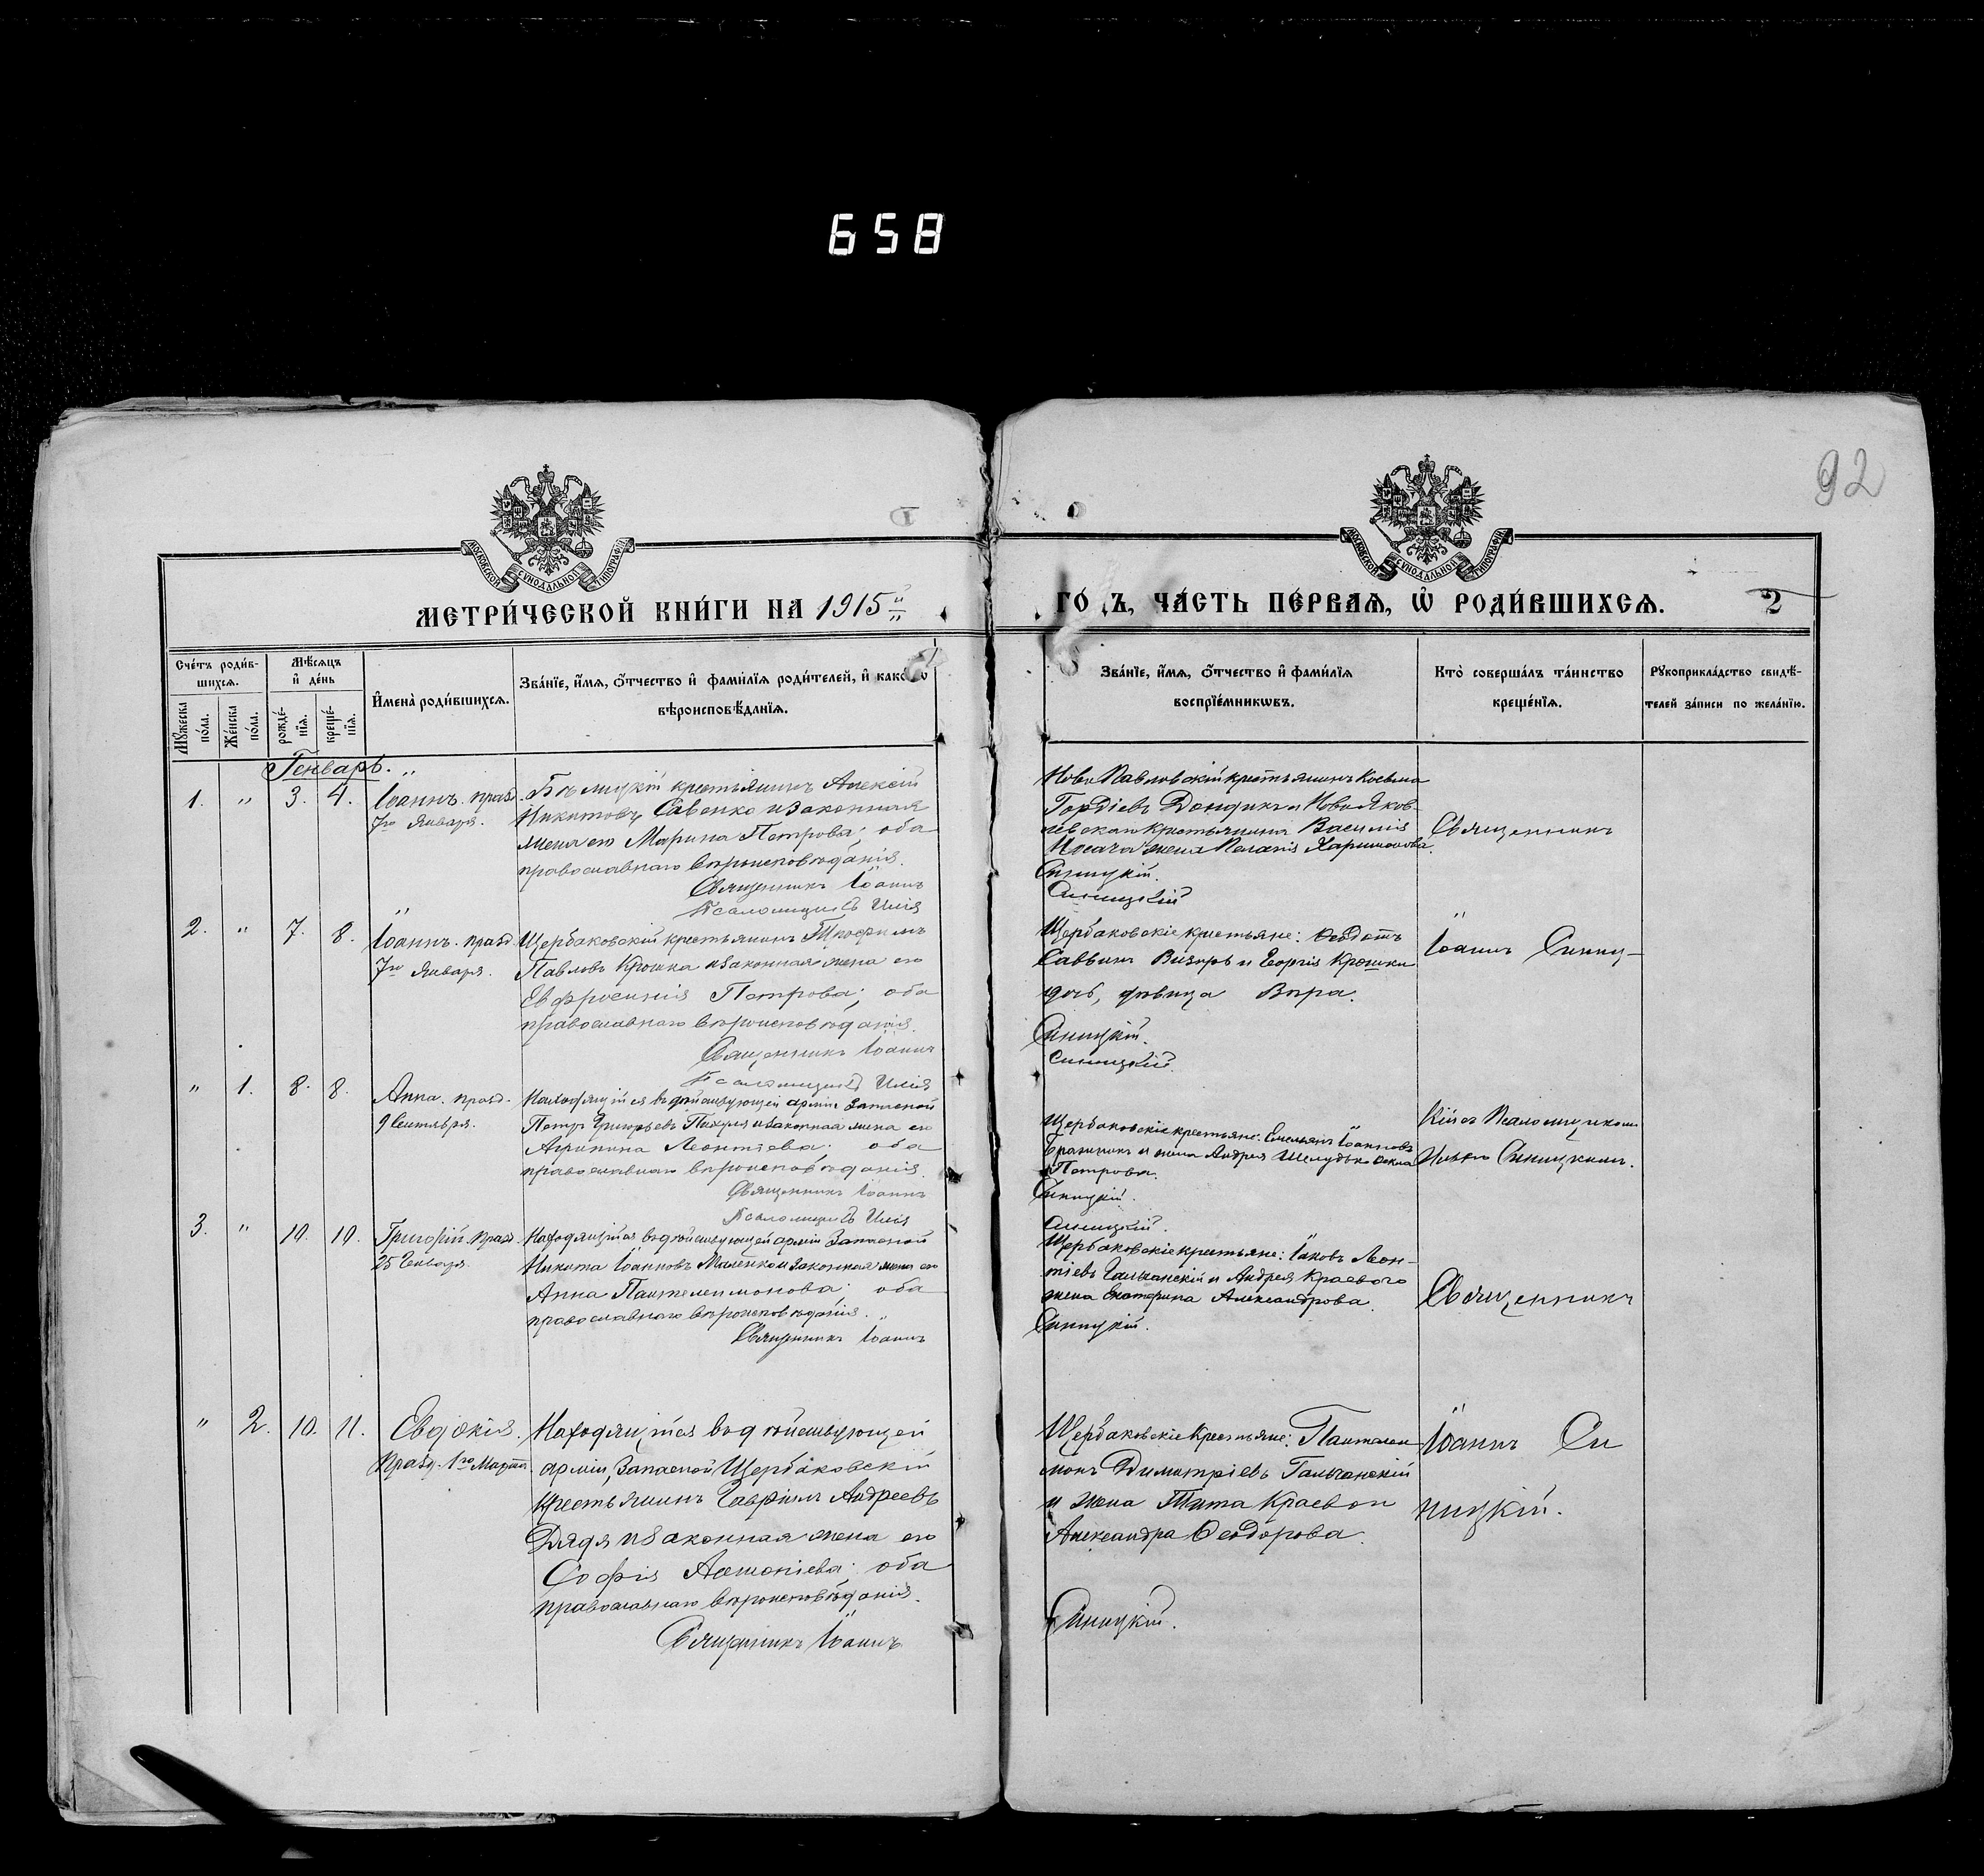 658
92
МОСКОВСКОЙ СУНОДАЛЬНОЙ ТИПОГРАФІИ
МОСКОВСКОЙ СУНОДАЛЬНОЙ ТИПОГРАФІИ
МЕТРИ́ЧЕСКОЙ КНИ́ГИ НА 1915
ГО́ДЪ, ЧА́СТЬ ПЕ́РВАѦ, Ѡ҆ РОДИ́ВШИХСѦ. 2
Сче́тъ роди́в-
шихсѧ.
Мꙋжеска по́ла.
Же́нска по́ла.
Мѣ́сѧцъ
и҆ де́нь
рожде́-
нїѧ.
креще́-
нїѧ.
И҆мена̀ роди́вшихсѧ.
Зва́нїе, и҆́мѧ, ѻ҆́тчество и҆ фами́лїѧ роди́телей, и҆ како́гѡ
вѣроисповѣ́данїѧ.
Зва́нїе, и҆́мѧ, ѻ҆́тчество и҆ фами́лїѧ
воспрїе́мникѡвъ.
Кто̀ соверша́лъ та́инство
креще́нїѧ.
Рꙋкоприкла́дство свидѣ́-
телей за́писи по жела́нїю.
Генварь.
1. " 3. 4. Іоаннъ. празд.
7го Января.
крестьянинъ Алексій
Никитовъ Савенко и законная
жена его Марина Петрова; оба
православнаго вѣроисповѣданія.
Священникъ Іоаннъ
Псаломщикъ Илія
Ново Павловскій крестьянинъ Косьма
Гордіевъ Дондикъ и Ново Яков-
левскаго крестьянина Василія
жена Харитонова.
Синицкій.
Синицкій
Священникъ
2. " 7. 8. Іоаннъ. празд.
7го Января.
Щербаковскій крестьянинъ Трофимъ
Павловъ Крошка и законная жена его
Евфросинія Петрова; оба
православнаго вѣроисповѣданія.
Священникъ Іоаннъ
Псаломщикъ Илія
Щербаковскіе крестьяне: Ѳеодотъ
Саввинъ Визирь и Георгія Крошки
дочь, дѣвица Вѣра.
Синицкій.
Синицкій.
Іоаннъ Синиц-
" 1. 8. 8. Анна. празд.
9 Сентября.
Находящійся въ дѣйствующей арміи Запасной
Петръ Григорьевъ и законная жена его
Агрипина Леонтіева; оба
православнаго вѣроисповѣданія.
Священникъ Іоаннъ
Псаломщикъ Илія
Щербаковскіе крестьяне: Емельянъ Іоанновъ
и жена Андрея Шелудько
Петрова.
Синицкій.
Синицкій.
кій съ Псаломщикомъ
Иліею Синицкимъ.
3. " 10. 10. Григорій. празд.
25 Генваря.
Находящійся въ дѣйствующей арміи Запасной
Никита Іоанновъ Маленко и законная жена его
Анна Пантелеимонова; оба
православнаго вѣроисповѣданія.
Священникъ Іоаннъ
Щербаковскіе крестьяне: Іаковъ Леон-
тіевъ Гальчанскій и Андрея Краевого
жена Екатерина Александрова.
Синицкій.
Священникъ
" 2. 10. 11. Евдокія.
Празд. 1го Марта.
Находящійся въ дѣйствующей
арміи, Запасной Щербаковскій
крестьянинъ Гавріилъ Андреевъ
Дядя и законная жена его
Софія Антоніева; оба
православнаго вѣроисповѣданія.
Священникъ Іоаннъ
Щербаковскіе крестьяне: Пантелеи-
монъ Димитріевъ Гальчанскій
и жена Тита Краевого
Александра Ѳеодорова.
Синицкій.
Іоаннъ Си
ницкій.